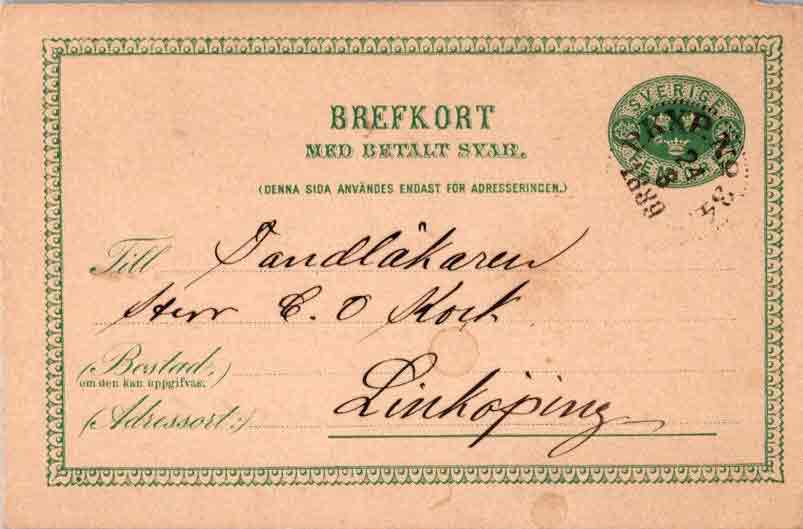 SVERIGE
BREFKORT
MED BETALT SVAR.
(DENNA SIDA ANVÄNDES ENDAST FÖR ADRESSERINGEN.)
PKXP. No
Till Tandläkaren
Herr C. O Kock
(Bostad,)
om den kan uppgifvas.
(Adressort:) Linköping